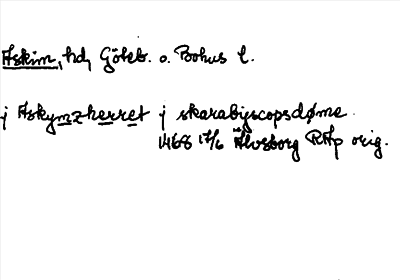 Askim, hd, Göteb. o. Bohus l.
j Askymzherret j skarabyscopsdøme.
1468 17/6 Älvsborg RAp orig.